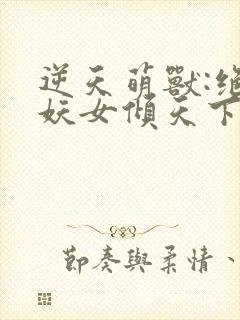 逆天萌獸:絕
妖女傾天下
節奏與柔情、